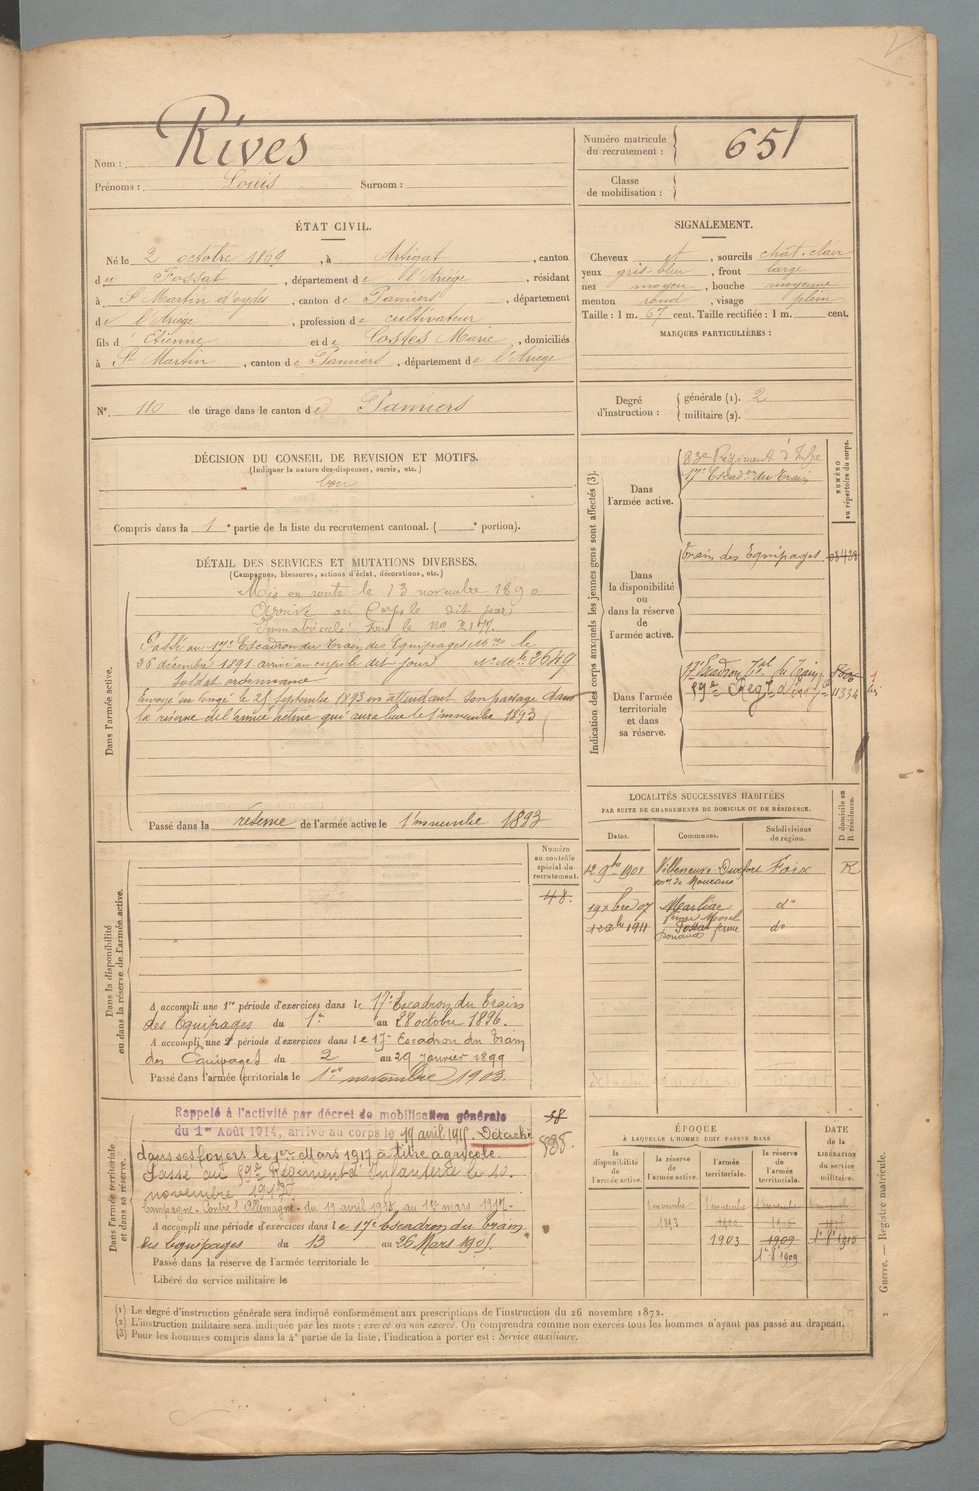 Nom : Rives
Prénoms : Louis Surnom :
Numéro matricule du recrutement : 651
Classe de mobilisation :
ÉTAT CIVIL.
Né le 2 octobre 1869, à Artigat, canton
du Fossat, département de l'Ariège, résidant
à St Martin d'oydes, canton de Pamiers, département
de l'Ariège, profession de cultivateur
fils d'Etienne et de Costes Marie, domiciliés
à St Martin, canton de Pamiers, département de l'Ariège
SIGNALEMENT.
Cheveux et, sourcils chat. clair
yeux gris bleu, front large
nez moyen, bouche moyenne
menton rond, visage plein
Taille : 1 m. 67 cent. Taille rectifiée : 1 m. cent.
MARQUES PARTICULIÈRES :
N° 110 de tirage dans le canton de Pamiers
Degré d'instruction : générale (1). 2
militaire (2).
DÉCISION DU CONSEIL DE REVISION ET MOTIFS.
(Indiquer la nature des dispenses, sursis, etc.)
bon
Compris dans la 1e partie de la liste du recrutement cantonal. ( e portion).
DÉTAIL DES SERVICES ET MUTATIONS DIVERSES.
(Campagnes, blessures, actions d'éclat, décorations, etc.)
Dans l'armée active.
Mis en route le 13 novembre 1890
Arrivé au Corps le dit jour
Immatriculé sous le No
Passé au 17e Escadron du Train des Equipages Mres le
26 décembre 1891 arrivé au corps le dit jour No Mle 3649
Soldat ordonnance
Envoyé en congé le 25 septembre 1893 en attendant son passage dans
la réserve de l'armée active qui aura lieu le 1er novembre 1893
Passé dans la réserve de l'armée active le 1er novembre 1893
Indication des corps auxquels les jeunes gens sont affectés (3).
NUMÉRO au répertoire du corps.
Dans l'armée active.
83e Régiment d'Infie
17e Escadon du Train
Dans la disponibilité ou dans la réserve de l'armée active.
Train des Equipages
Dans l'armée territoriale et dans sa réserve.
17e Escadron Tal du Train
11334
LOCALITÉS SUCCESSIVES HABITÉES
PAR SUITE DE CHANGEMENTS DE DOMICILE OU DE RÉSIDENCE.
Dates. Communes. Subdivisions de région. D domicile ou R résidence.
12 9bre 1901 Villeneuve-Durfort Foix R
19 Xbre 07 Marliac do
1911 Fossat ferme do
Dans la disponibilité ou dans la réserve de l'armée active.
Numéro au contrôle spécial du recrutement.
48.
A accompli une 1re période d'exercices dans le 17e Escadron du Train
des Equipages du 1er au 28 octobre 1896.
A accompli une 2e période d'exercices dans le 17e Escadron du Train
des Equipages du 2 au 29 janvier 1899
Passé dans l'armée territoriale le 1er novembre 1903.
Dans l'armée territoriale et dans sa réserve.
Rappelé à l'activité par décret de mobilisation générale
du 1er Août 1914, arrivé au corps le 19 avril 1915. Détaché
dans ses foyers le 1er Mars 1917 à titre agricole.
Passé au 59e Régiment d'Infanterie le 10
novembre 1917
Campagne - Contre l'Allemagne - du 19 avril 1915 au 1er mars 1917.
A accompli une période d'exercices dans le 17e Escadron du Train
des Equipages du 13 au 26 Mars 1905.
Passé dans la réserve de l'armée territoriale le
Libéré du service militaire le
ÉPOQUE
À LAQUELLE L'HOMME DOIT PASSER DANS
la disponibilité de l'armée active. la réserve de l'armée active. l'armée territoriale. la réserve de l'armée territoriale.
DATE de la LIBÉRATION du service militaire.
1 novembre 1893
1 novembre 1900
1903
1909
1er 8bre 1909
(1) Le degré d'instruction générale sera indiqué conformément aux prescriptions de l'instruction du 26 novembre 1872.
(2) L'instruction militaire sera indiquée par les mots : exercé ou non exercé. On comprendra comme non exercés tous les hommes n'ayant pas passé au drapeau.
(3) Pour les hommes compris dans la 4e partie de la liste, l'indication à porter est : Service auxiliaire.
Guerre. — Registre matricule.